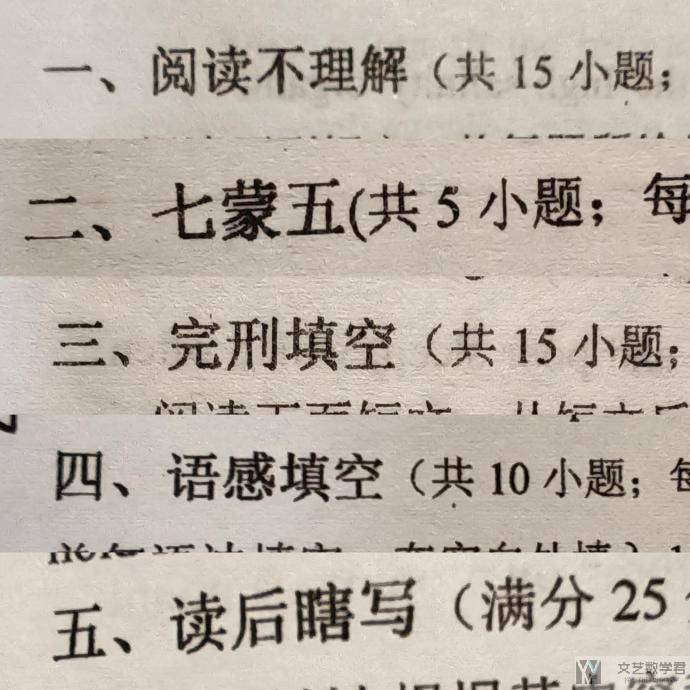 一、阅读不理解（共 15 小题；
二、七蒙五(共 5 小题；每
三、完刑填空（共 15 小题；
四、语感填空（共 10 小题；每
五、读后瞎写（满分 25
文艺数学君